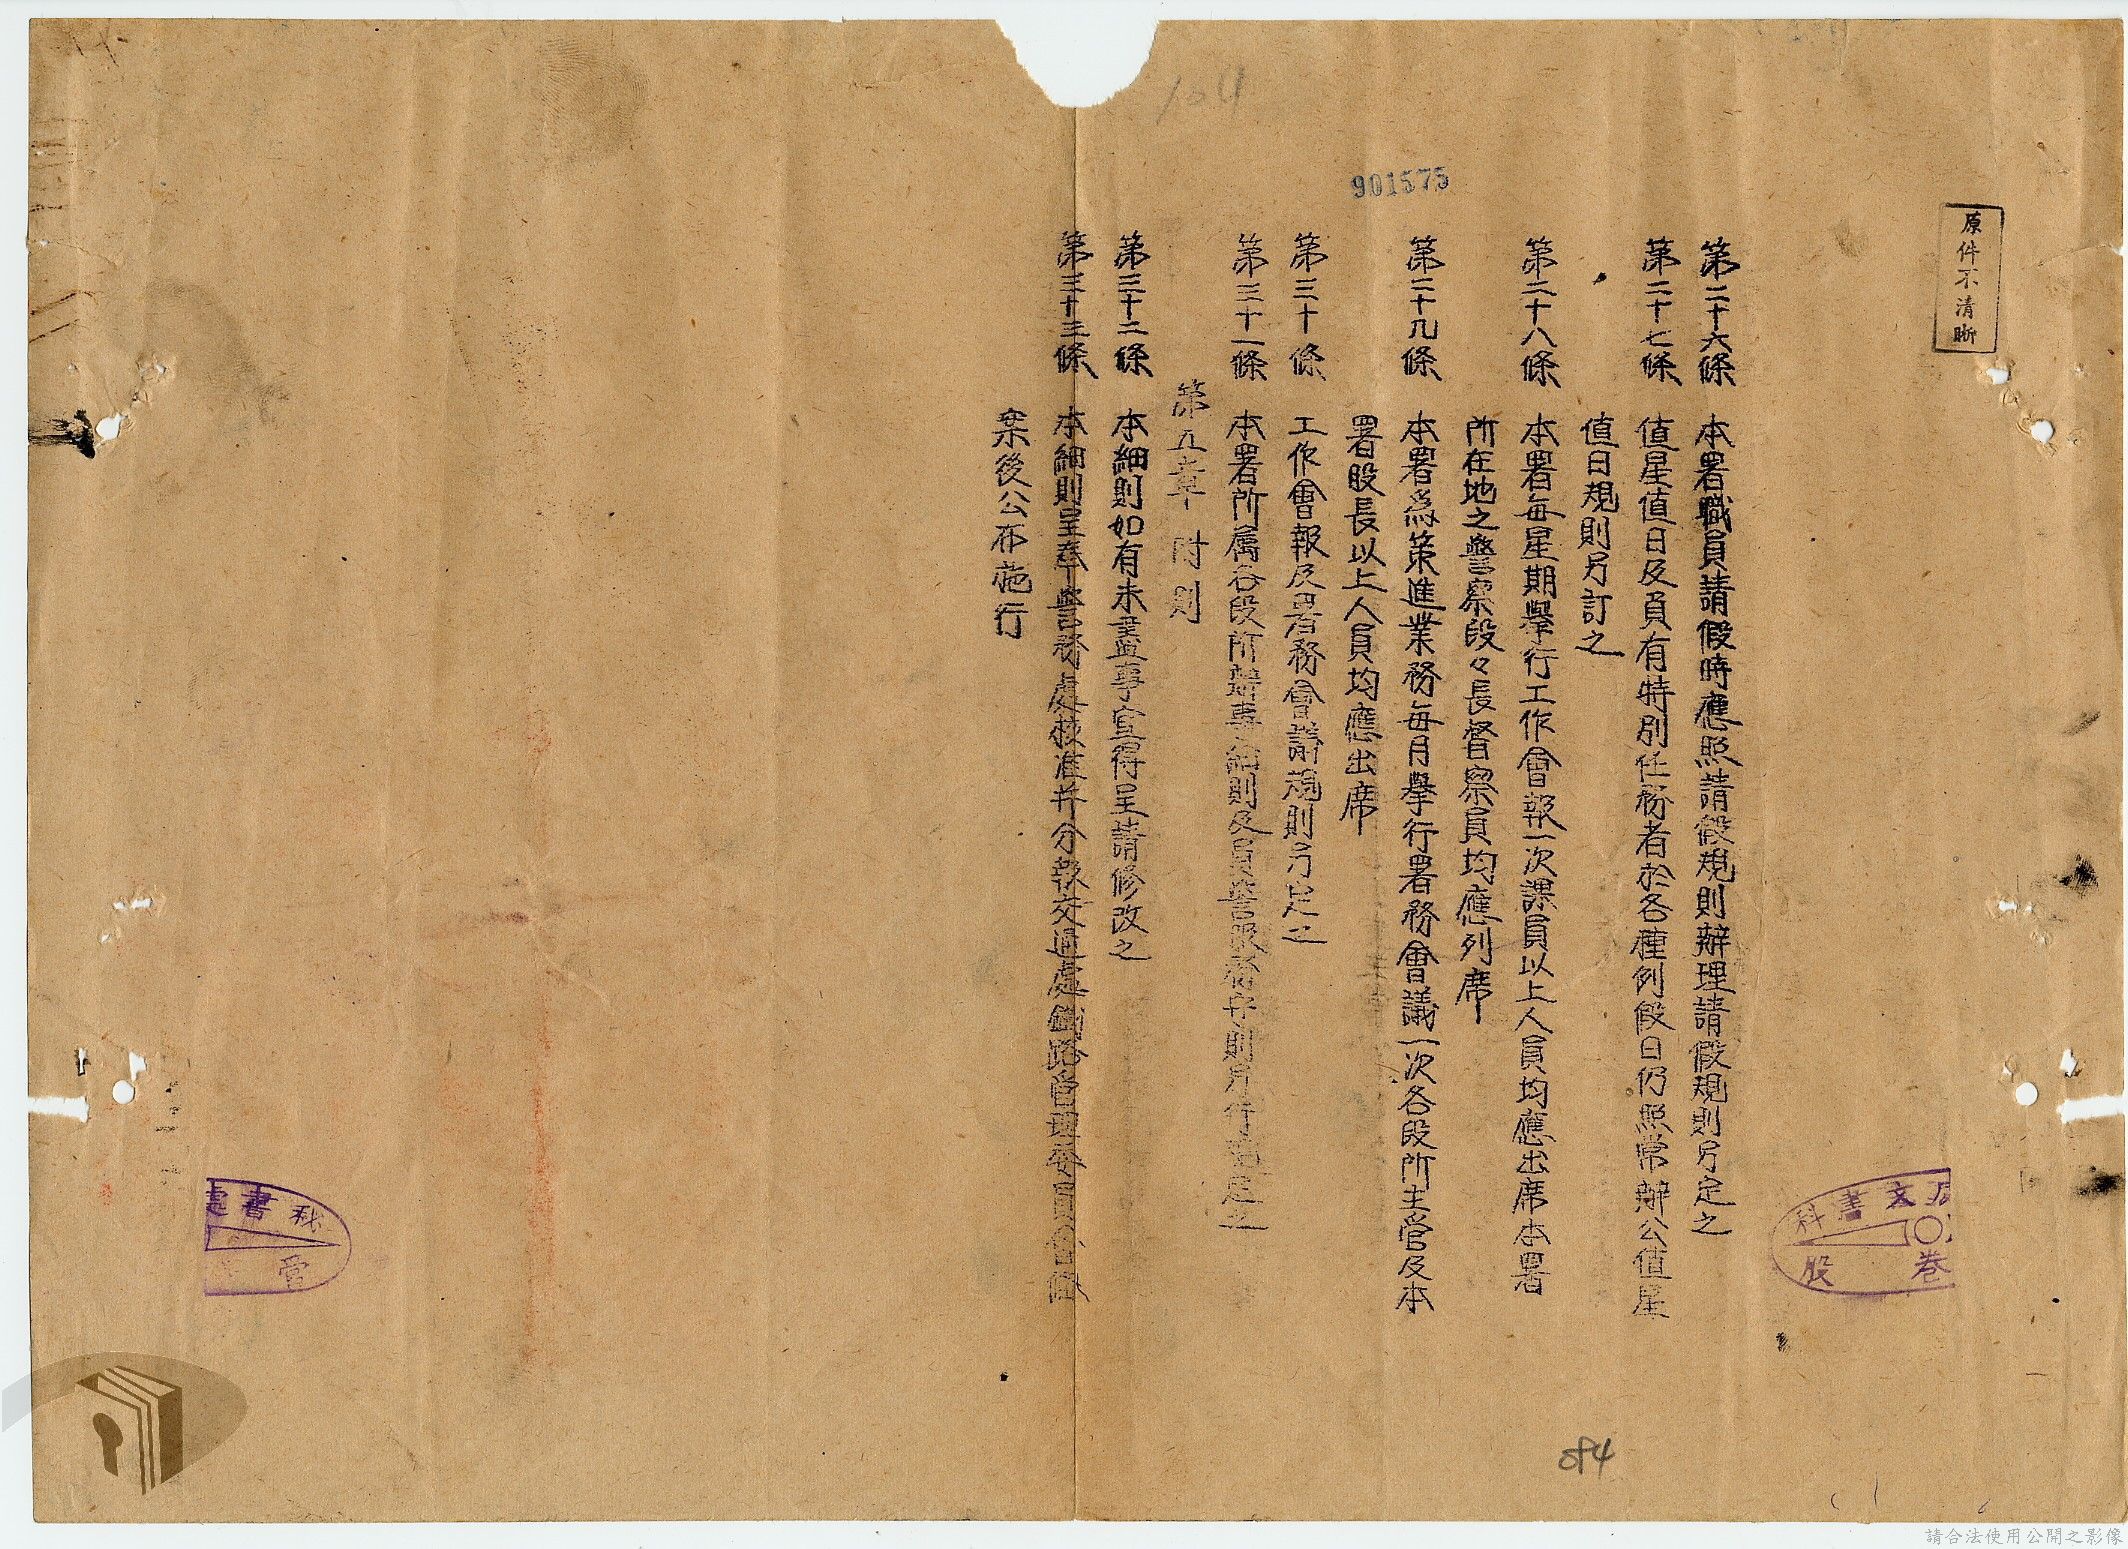 原件不清晰
901575
104
第二十六條 本署職員請假時應照請假規則辦理請假規則另定之
第二十七條 值星值日及員有特別任務者於各種例假日仍照常辦公值星
值日規則另訂之
第二十八條 本署每星期舉行工作會報一次課員以上人員均應出席本署
所在地之警察段々長督察員均應列席
第二十九條 本署為策進業務每月舉行署務會議一次各段所主管及本
署股長以上人員均應出席
第三十條 工作會報及署務會議規則另定之
第三十一條 本署所屬各段所辦事細則及員警服務守則另行定之
第五章 附則
第三十二條 本細則如有未盡事宜得呈請修改之
第三十三條 本細則呈奉警務處核准并分報交通處鐵路管理委員會備
案後公布施行
文書科
卷
股
秘書處
管
084
請合法使用公開之影像